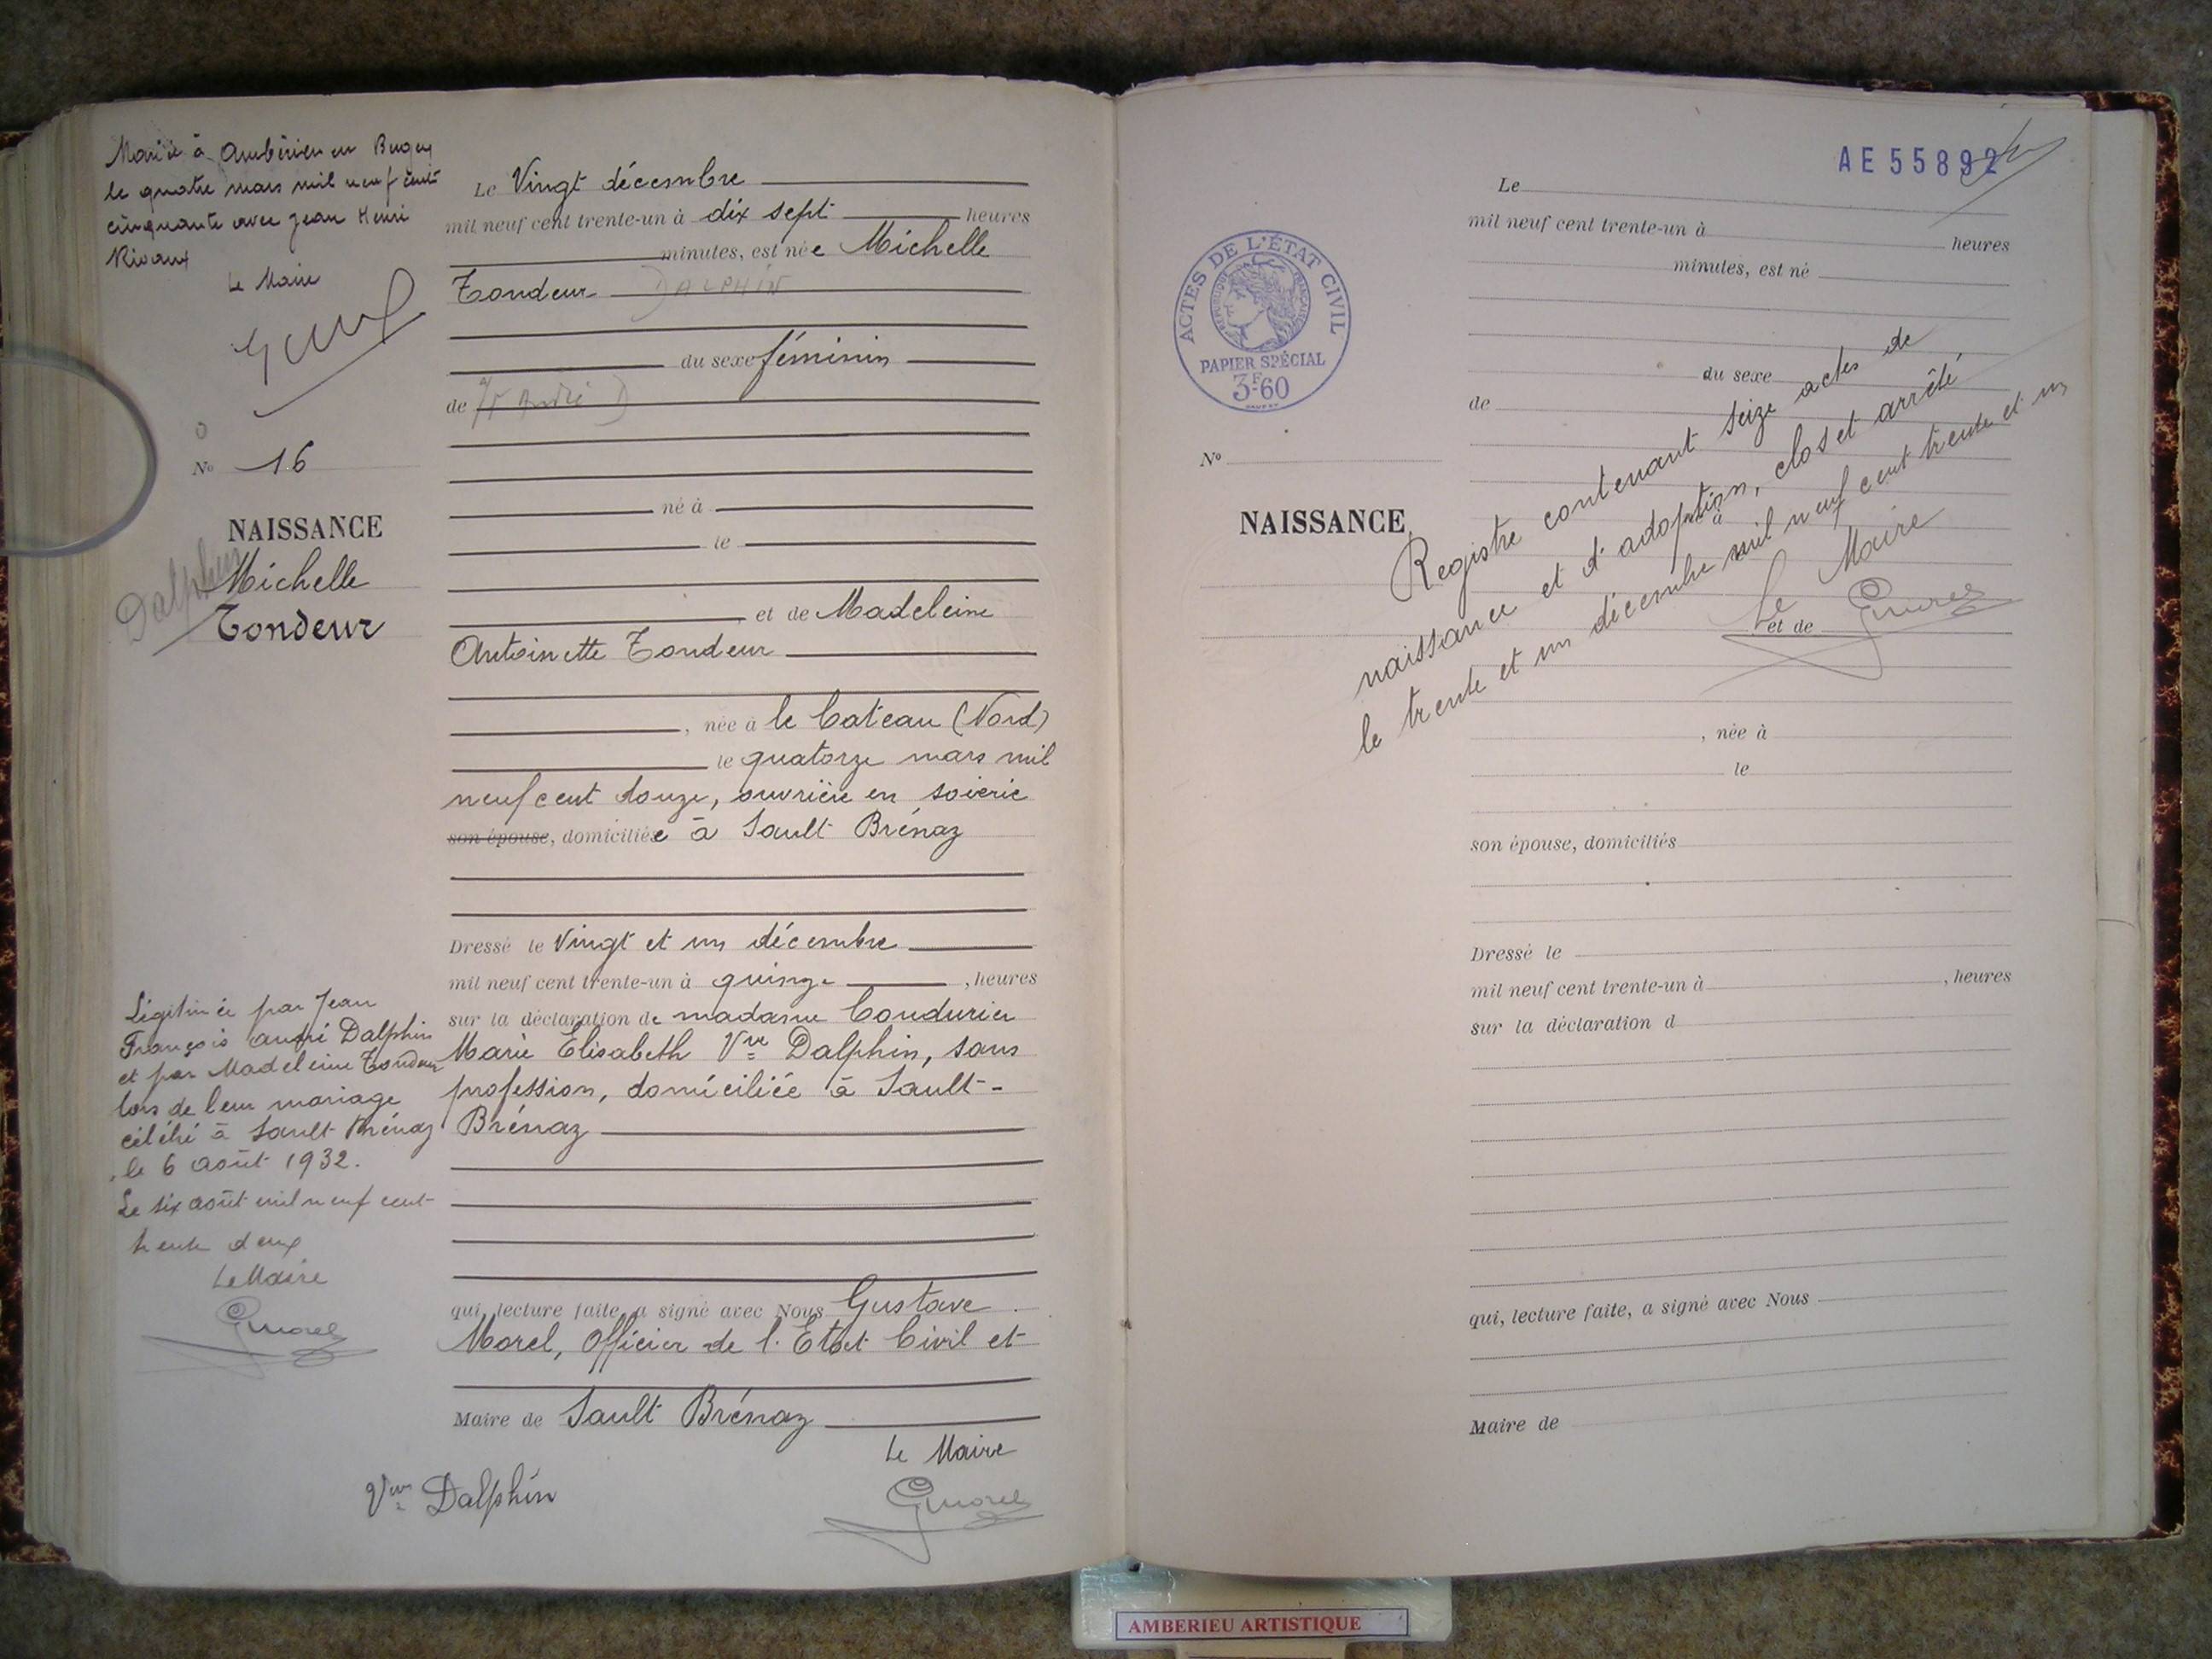 Mariée à Ambérieu en Bugey
le quatre mars mil neuf cent
cinquante avec Jean Henri
Rivaux
Le Maire
N° 16
NAISSANCE
Dalphin
Michelle
Tondeur
Légitimée par Jean
François André Dalphin
et par Madeleine Tondeur
lors de leur mariage
célébré à Sault Brénaz
le 6 août 1932.
Le six août mil neuf cent
trente deux
Le Maire
GMorel
Le Vingt décembre
mil neuf cent trente-un à dix sept heures
minutes, est née Michelle
Tondeur DALPHIN
du sexe féminin
de André D
né à
le
et de Madeleine
Antoinette Tondeur
, née à le Cateau (Nord)
le quatorze mars mil
neuf cent douze, ouvrière en soierie
son épouse, domiciliée à Sault Brénaz
Dressé le Vingt et un décembre
mil neuf cent trente-un à quinze , heures
sur la déclaration de madame Coudurier
Marie Elisabeth Vve Dalphin, sans
profession, domiciliée à Sault-
Brénaz
qui, lecture faite, a signé avec Nous Gustave
Morel, Officier de l'Etat Civil et
Maire de Sault Brénaz
Le Maire
Vve Dalphin
GMorel
AE 55892
ACTES DE L'ÉTAT CIVIL
RÉPUBLIQUE FRANÇAISE
PAPIER SPÉCIAL
3F.60
N°
NAISSANCE
Le
mil neuf cent trente-un à
heures
minutes, est né
du sexe
de
né à
le
Registre contenant seize actes de
naissance et d'adoption, clos et arrêté
le trente et un décembre mil neuf cent trente et un
Le Maire
GMorel
et de
, née à
le
son épouse, domiciliés
Dressé le
mil neuf cent trente-un à , heures
sur la déclaration d
qui, lecture faite, a signé avec Nous
Maire de
AMBERIEU ARTISTIQUE